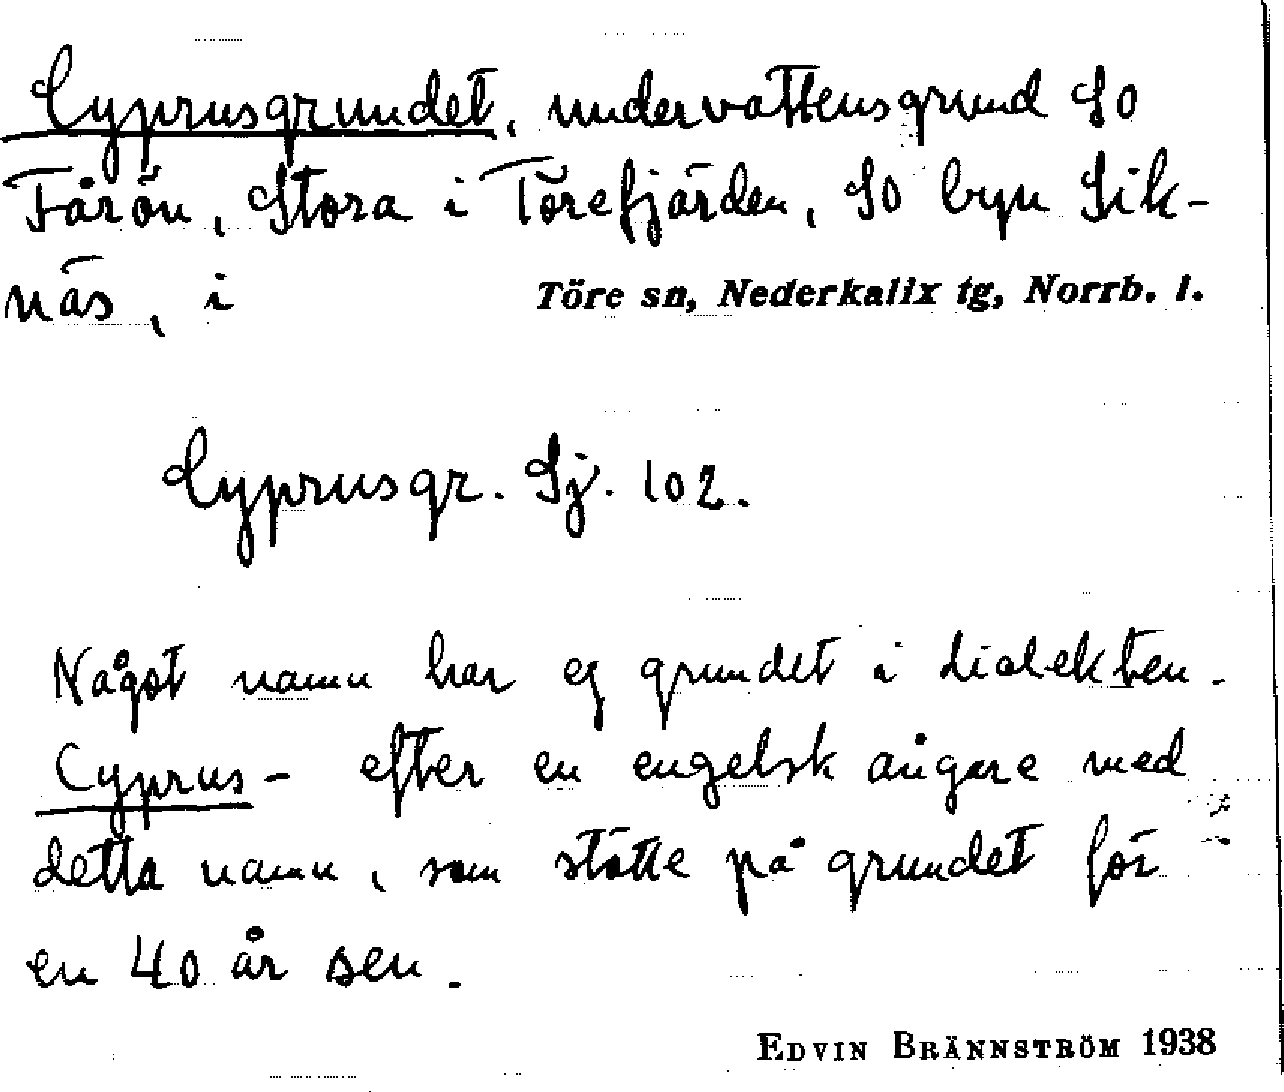 Cyprusgrundet, undervattensgrund SO
Fårön, Stora i Törefjärden, SO byn Sik-
näs, i Töre sn, Nederkalix tg, Norrb. l.
Cyprusgr. Sj. 102.
Något namn har ej grundet i dialekten.
Cyprus- efter en engelsk ångare med
detta namn, som stötte på grundet för
en 40 år sen.
EDVIN BRÄNNSTRÖM 1938